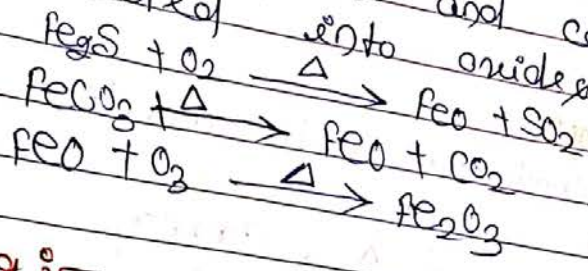 into and
oxides
Fe2S + O2 Δ→ FeO + SO2
FeCO3 + Δ→ FeO + CO2
FeO + O3 Δ→ Fe2O3